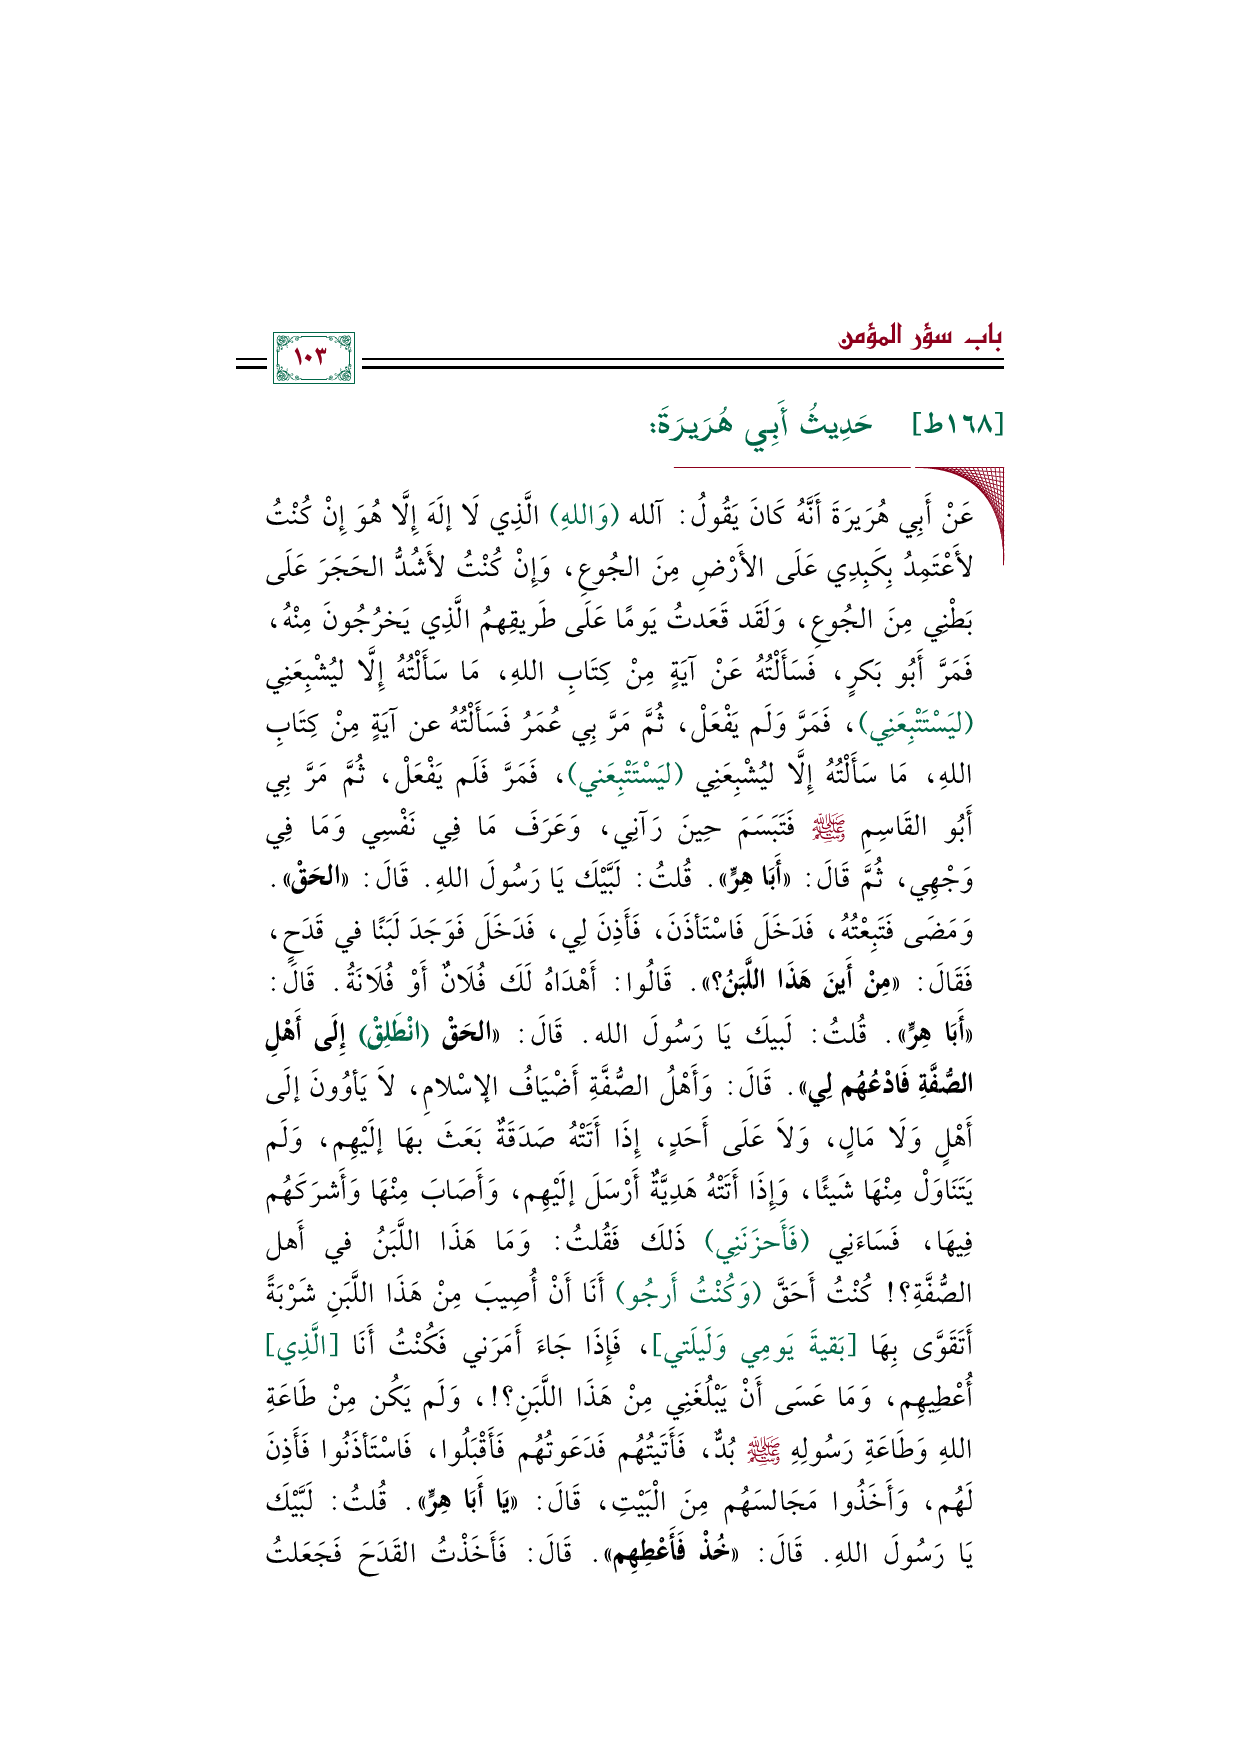 باب سؤر المؤمن
١٠٣
[١٦٨ط] حَدِيثُ أَبِي هُرَيرَةَ:
عَنْ أَبِي هُرَيرَةَ أَنَّهُ كَانَ يَقُولُ: آلله (وَاللهِ) الَّذِي لَا إلَهَ إِلَّا هُوَ إِنْ كُنْتُ
لأَعْتَمِدُ بِكَبِدِي عَلَى الأَرْضِ مِنَ الجُوعِ، وَإِنْ كُنْتُ لأَشُدُّ الحَجَرَ عَلَى
بَطْنِي مِنَ الجُوعِ، وَلَقَد قَعَدتُ يَومًا عَلَى طَريقِهمُ الَّذِي يَخرُجُونَ مِنْهُ،
فَمَرَّ أَبُو بَكرٍ، فَسَأَلْتُهُ عَنْ آيَةٍ مِنْ كِتَابِ اللهِ، مَا سَأَلْتُهُ إِلَّا ليُشْبِعَنِي
(ليَسْتَتْبِعَنِي)، فَمَرَّ وَلَم يَفْعَلْ، ثُمَّ مَرَّ بِي عُمَرُ فَسَأَلْتُهُ عن آيَةٍ مِنْ كِتَابِ
اللهِ، مَا سَأَلْتُهُ إِلَّا ليُشْبِعَنِي (ليَسْتَتْبِعَني)، فَمَرَّ فَلَم يَفْعَلْ، ثُمَّ مَرَّ بِي
أَبُو القَاسِمِ ﷺ فَتَبَسَمَ حِينَ رَآنِي، وَعَرَفَ مَا فِي نَفْسِي وَمَا فِي
وَجْهِي، ثُمَّ قَالَ: «أَبَا هِرٍّ». قُلتُ: لَبَّيْكَ يَا رَسُولَ اللهِ. قَالَ: «الحَقْ».
وَمَضَى فَتَبِعْتُهُ، فَدَخَلَ فَاسْتَأذَنَ، فَأَذِنَ لِي، فَدَخَلَ فَوَجَدَ لَبَنًا في قَدَحٍ،
فَقَالَ: «مِنْ أَينَ هَذَا اللَّبَنُ؟». قَالُوا: أَهْدَاهُ لَكَ فُلَانٌ أَوْ فُلَانَةُ. قَالَ:
«أَبَا هِرٍّ». قُلتُ: لَبيكَ يَا رَسُولَ الله. قَالَ: «الحَقْ (انْطَلِقْ) إِلَى أَهْلِ
الصُّفَّةِ فَادْعُهُم لِي». قَالَ: وَأَهْلُ الصُّفَّةِ أَضْيَافُ الإسْلامِ، لاَ يَأوُونَ إلَى
أَهْلٍ وَلَا مَالٍ، وَلاَ عَلَى أَحَدٍ، إِذَا أَتَتْهُ صَدَقَةٌ بَعَثَ بهَا إلَيْهِم، وَلَم
يَتَنَاوَلْ مِنْهَا شَيئًا، وَإِذَا أَتَتْهُ هَدِيَّةٌ أَرْسَلَ إلَيْهِم، وَأَصَابَ مِنْهَا وَأَشرَكَهُم
فِيهَا، فَسَاءَنِي (فَأَحزَنَنِي) ذَلكَ فَقُلتُ: وَمَا هَذَا اللَّبَنُ في أَهل
الصُّفَّةِ؟! كُنْتُ أَحَقَّ (وَكُنْتُ أَرجُو) أَنَا أَنْ أُصِيبَ مِنْ هَذَا اللَّبَنِ شَرْبَةً
أَتَقَوَّى بِهَا [بَقيةَ يَومِي وَلَيلَتي]، فَإِذَا جَاءَ أَمَرَني فَكُنْتُ أَنَا [الَّذِي]
أُعْطِيهِم، وَمَا عَسَى أَنْ يَبْلُغَنِي مِنْ هَذَا اللَّبَنِ؟!، وَلَم يَكُن مِنْ طَاعَةِ
اللهِ وَطَاعَةِ رَسُولِهِ ﷺ بُدٌّ، فَأَتَيتُهُم فَدَعَوتُهُم فَأَقْبَلُوا، فَاسْتَأذَنُوا فَأَذِنَ
لَهُم، وَأَخَذُوا مَجَالسَهُم مِنَ الْبَيْتِ، قَالَ: «يَا أَبَا هِرٍّ». قُلتُ: لَبَّيْكَ
يَا رَسُولَ اللهِ. قَالَ: «خُذْ فَأَعْطِهِم». قَالَ: فَأَخَذْتُ القَدَحَ فَجَعَلتُ